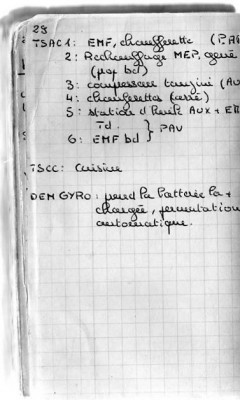 28
TSAC1: EMF, chaufferette (PAR
2: Rechauffage MEP, géné
(pop bd)
3: compresseur tanguini (AV
4: chaufferettes (arré)
5: station d'huile AUX + ER
Td. } PAV
6: EMF bd
TSCC: Cuisine
DEM GYRO: prend la batterie la +
chargée, permutation
automatique.